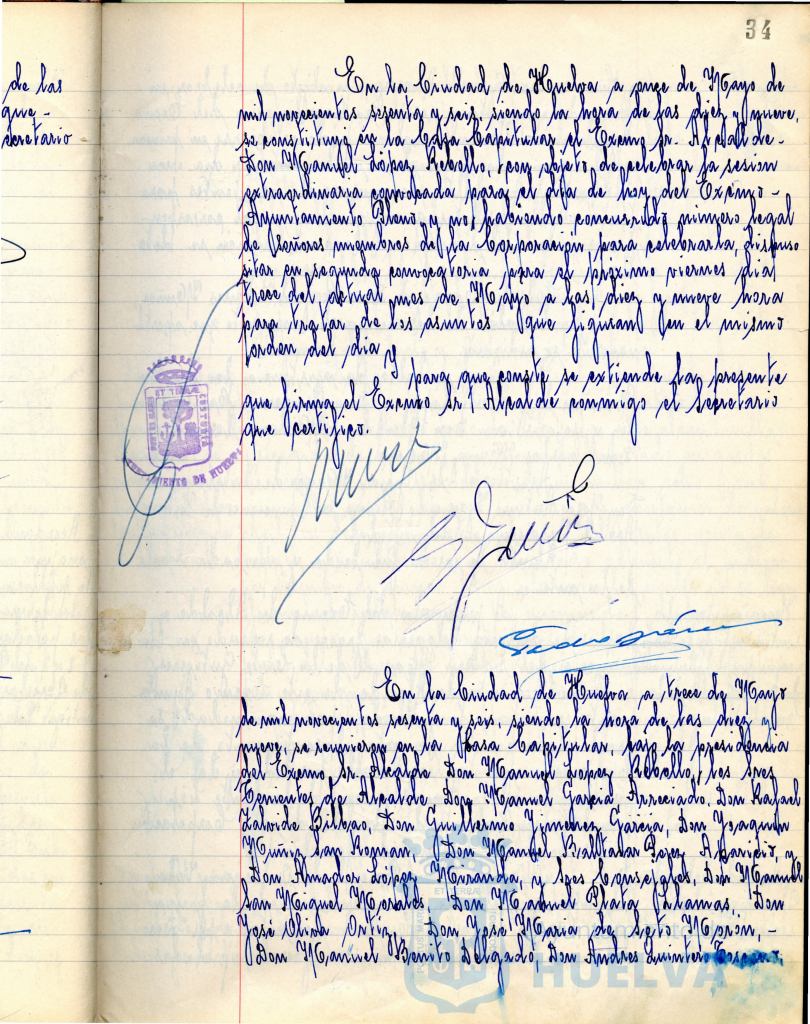 34
de las
que -
cretario
En la Ciudad de Huelva a once de Mayo de
mil novecientos sesenta y seis, siendo la hora de las diez y nueve,
se constituyó en la Casa Capitular el Excmo. Sr. Alcalde -
Don Manuel López Rebollo, con objeto de celebrar la sesión
extraordinaria convocada para el dia de hoy del Excmo -
Ayuntamiento Pleno, y no habiendo concurrido número legal
de Señores miembros de la Corporación para celebrarla, dispuso
citar en segunda convocatoria para el próximo viernes dia
trece del actual mes de Mayo a las diez y nueve hora
para tratar de los asuntos que figuran en el mismo
orden del dia
Y para que conste se extiende la presente
que firma el Excmo Sr Alcalde conmigo el Secretario
que certifico.
AYUNTAMIENTO DE HUELVA
En la Ciudad de Huelva a trece de Mayo
de mil novecientos sesenta y seis, siendo la hora de las diez y
nueve, se reunieron en la Casa Capitular, bajo la presidencia
del Excmo Sr. Alcalde Don Manuel López Rebollo, los Sres
Tenientes de Alcalde Don Manuel Garcia Arreciado, Don Rafael
Zalvide Bilbao, Don Guillermo Jimenez Garcia, Don Joaquin
Muñiz San Roman, Don Manuel Baltasar Perez Aparicio, y
Don Amador López Miranda, y Sres Concejales, Don Manuel
San Miguel Morales Don Manuel Plata Llamas, Don
José Oliva Ortiz, Don José Maria de Soto Morón, -
Don Manuel Benito Delgado, Don Andres Quintero
HUELVA